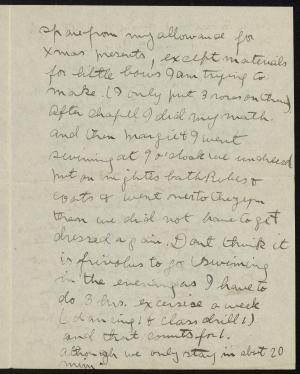 spare from my allowance for
Xmas presents, except materials
for little bows I am trying to
make. (I only put 3 rows on them)
After chapel I did my math.
and then Margie & I went
swimming at 9 o'clock we undressed
put on nighties bath Robes &
coats & went over to the gym
then we did not have to get
dressed again. Dont think it
is frivolus to go swimming
in the evening as I have to
do 3 hrs. excersise a week
(dancing 1 & class drill 1)
and that counts for 1.
although we only stay in abot 20
mins